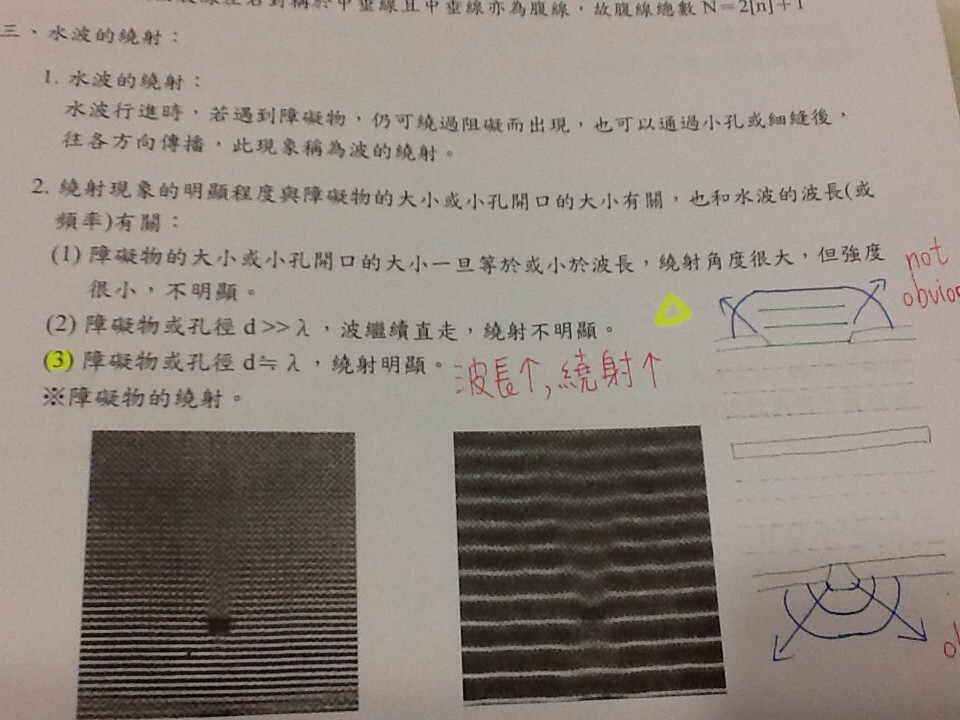 線左右對稱於中垂線且中垂線亦為腹線，故腹線總數 N=2[n]+1
三、水波的繞射：
1. 水波的繞射：
水波行進時，若遇到障礙物，仍可繞過阻礙而出現，也可以通過小孔或細縫後，
往各方向傳播，此現象稱為波的繞射。
2. 繞射現象的明顯程度與障礙物的大小或小孔開口的大小有關，也和水波的波長(或
頻率)有關：
(1) 障礙物的大小或小孔開口的大小一旦等於或小於波長，繞射角度很大，但強度
很小，不明顯。
not
obvio
(2) 障礙物或孔徑 d>>λ，波繼續直走，繞射不明顯。
(3) 障礙物或孔徑 d≒λ，繞射明顯。
波長↑,繞射↑
※障礙物的繞射。